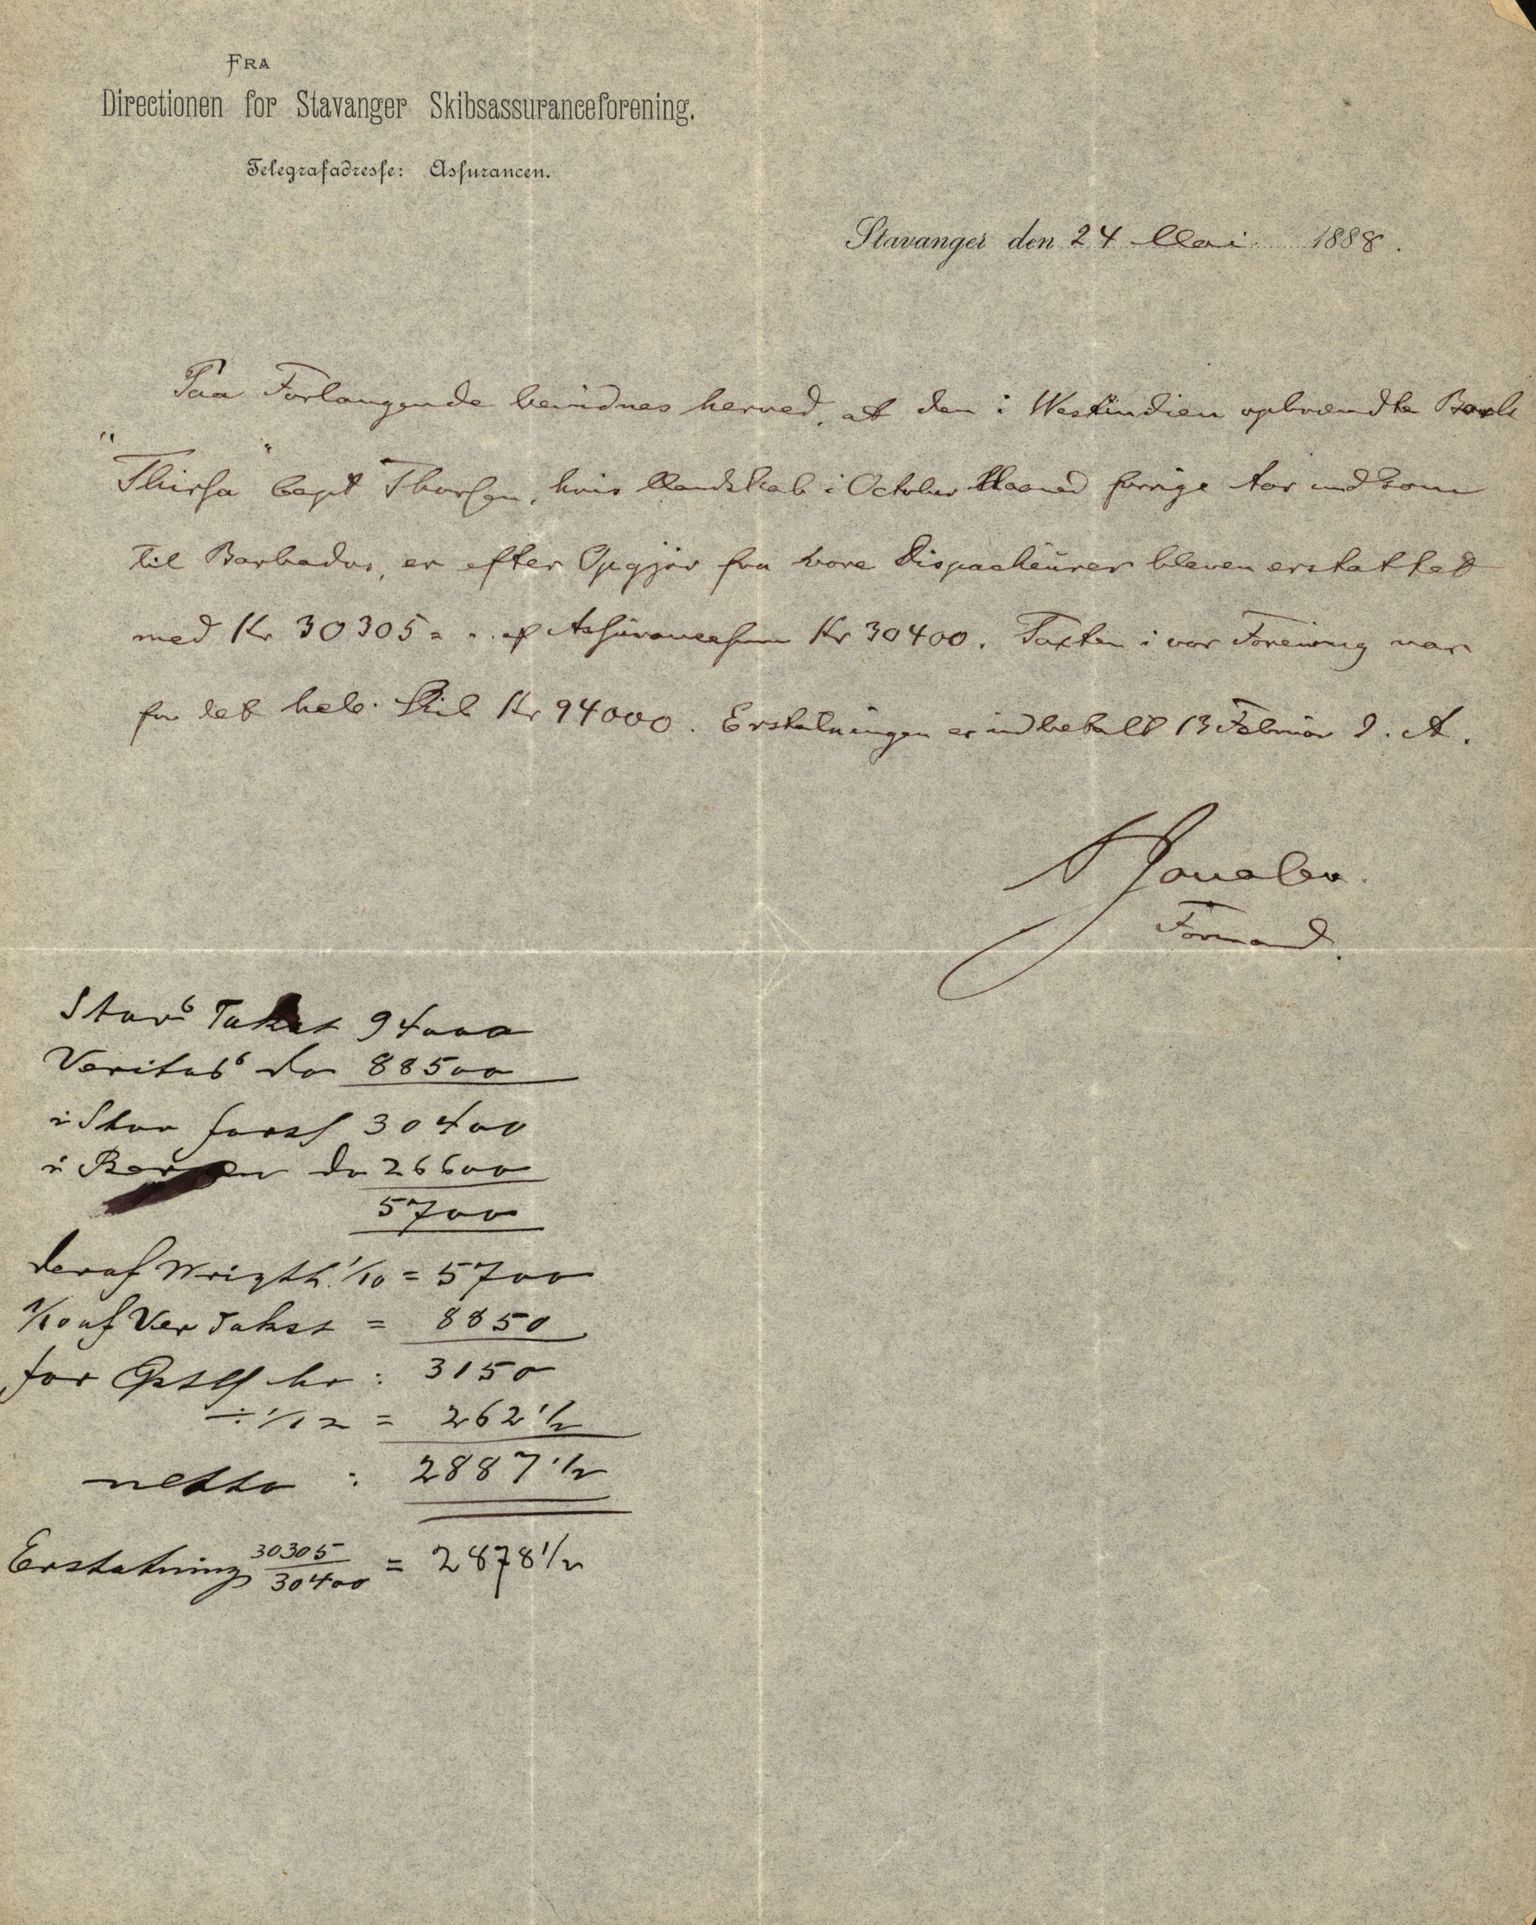 FRA
Directionen for Stavanger Skibsassuranceforening.
Telegrafadresse: Assurancen.
Stavanger den 24 Mai 1888.
Paa Forlangende bevidnes herved, at den i Westindien opbrændte Bark
"Thirsa" Capt Thorsen, hvis Mandskab i October Maaned forrige Aar indkom
til Barbados, er efter Opgjør fra vore Dispacheurer bleven erstattet
med Kr 30305 = . af Assurancesum Kr 30400. Taxten i vor Forening var
for det hele Skib Kr 94000. Erstatningen er indbetalt 13 Februar d. A.
Formand.
Stavs Takst 94000
Veritas do 88500
i Stav forss 30400
i Bergen do 26600
5700
deraf Wrigth 1/10 = 5700
1/10 af Ver Takst = 8850
for kr: 3150
÷ 1/12 = 262 1/2
netto : 2887 1/2
Erstatning 30305/30400 = 2878 1/2